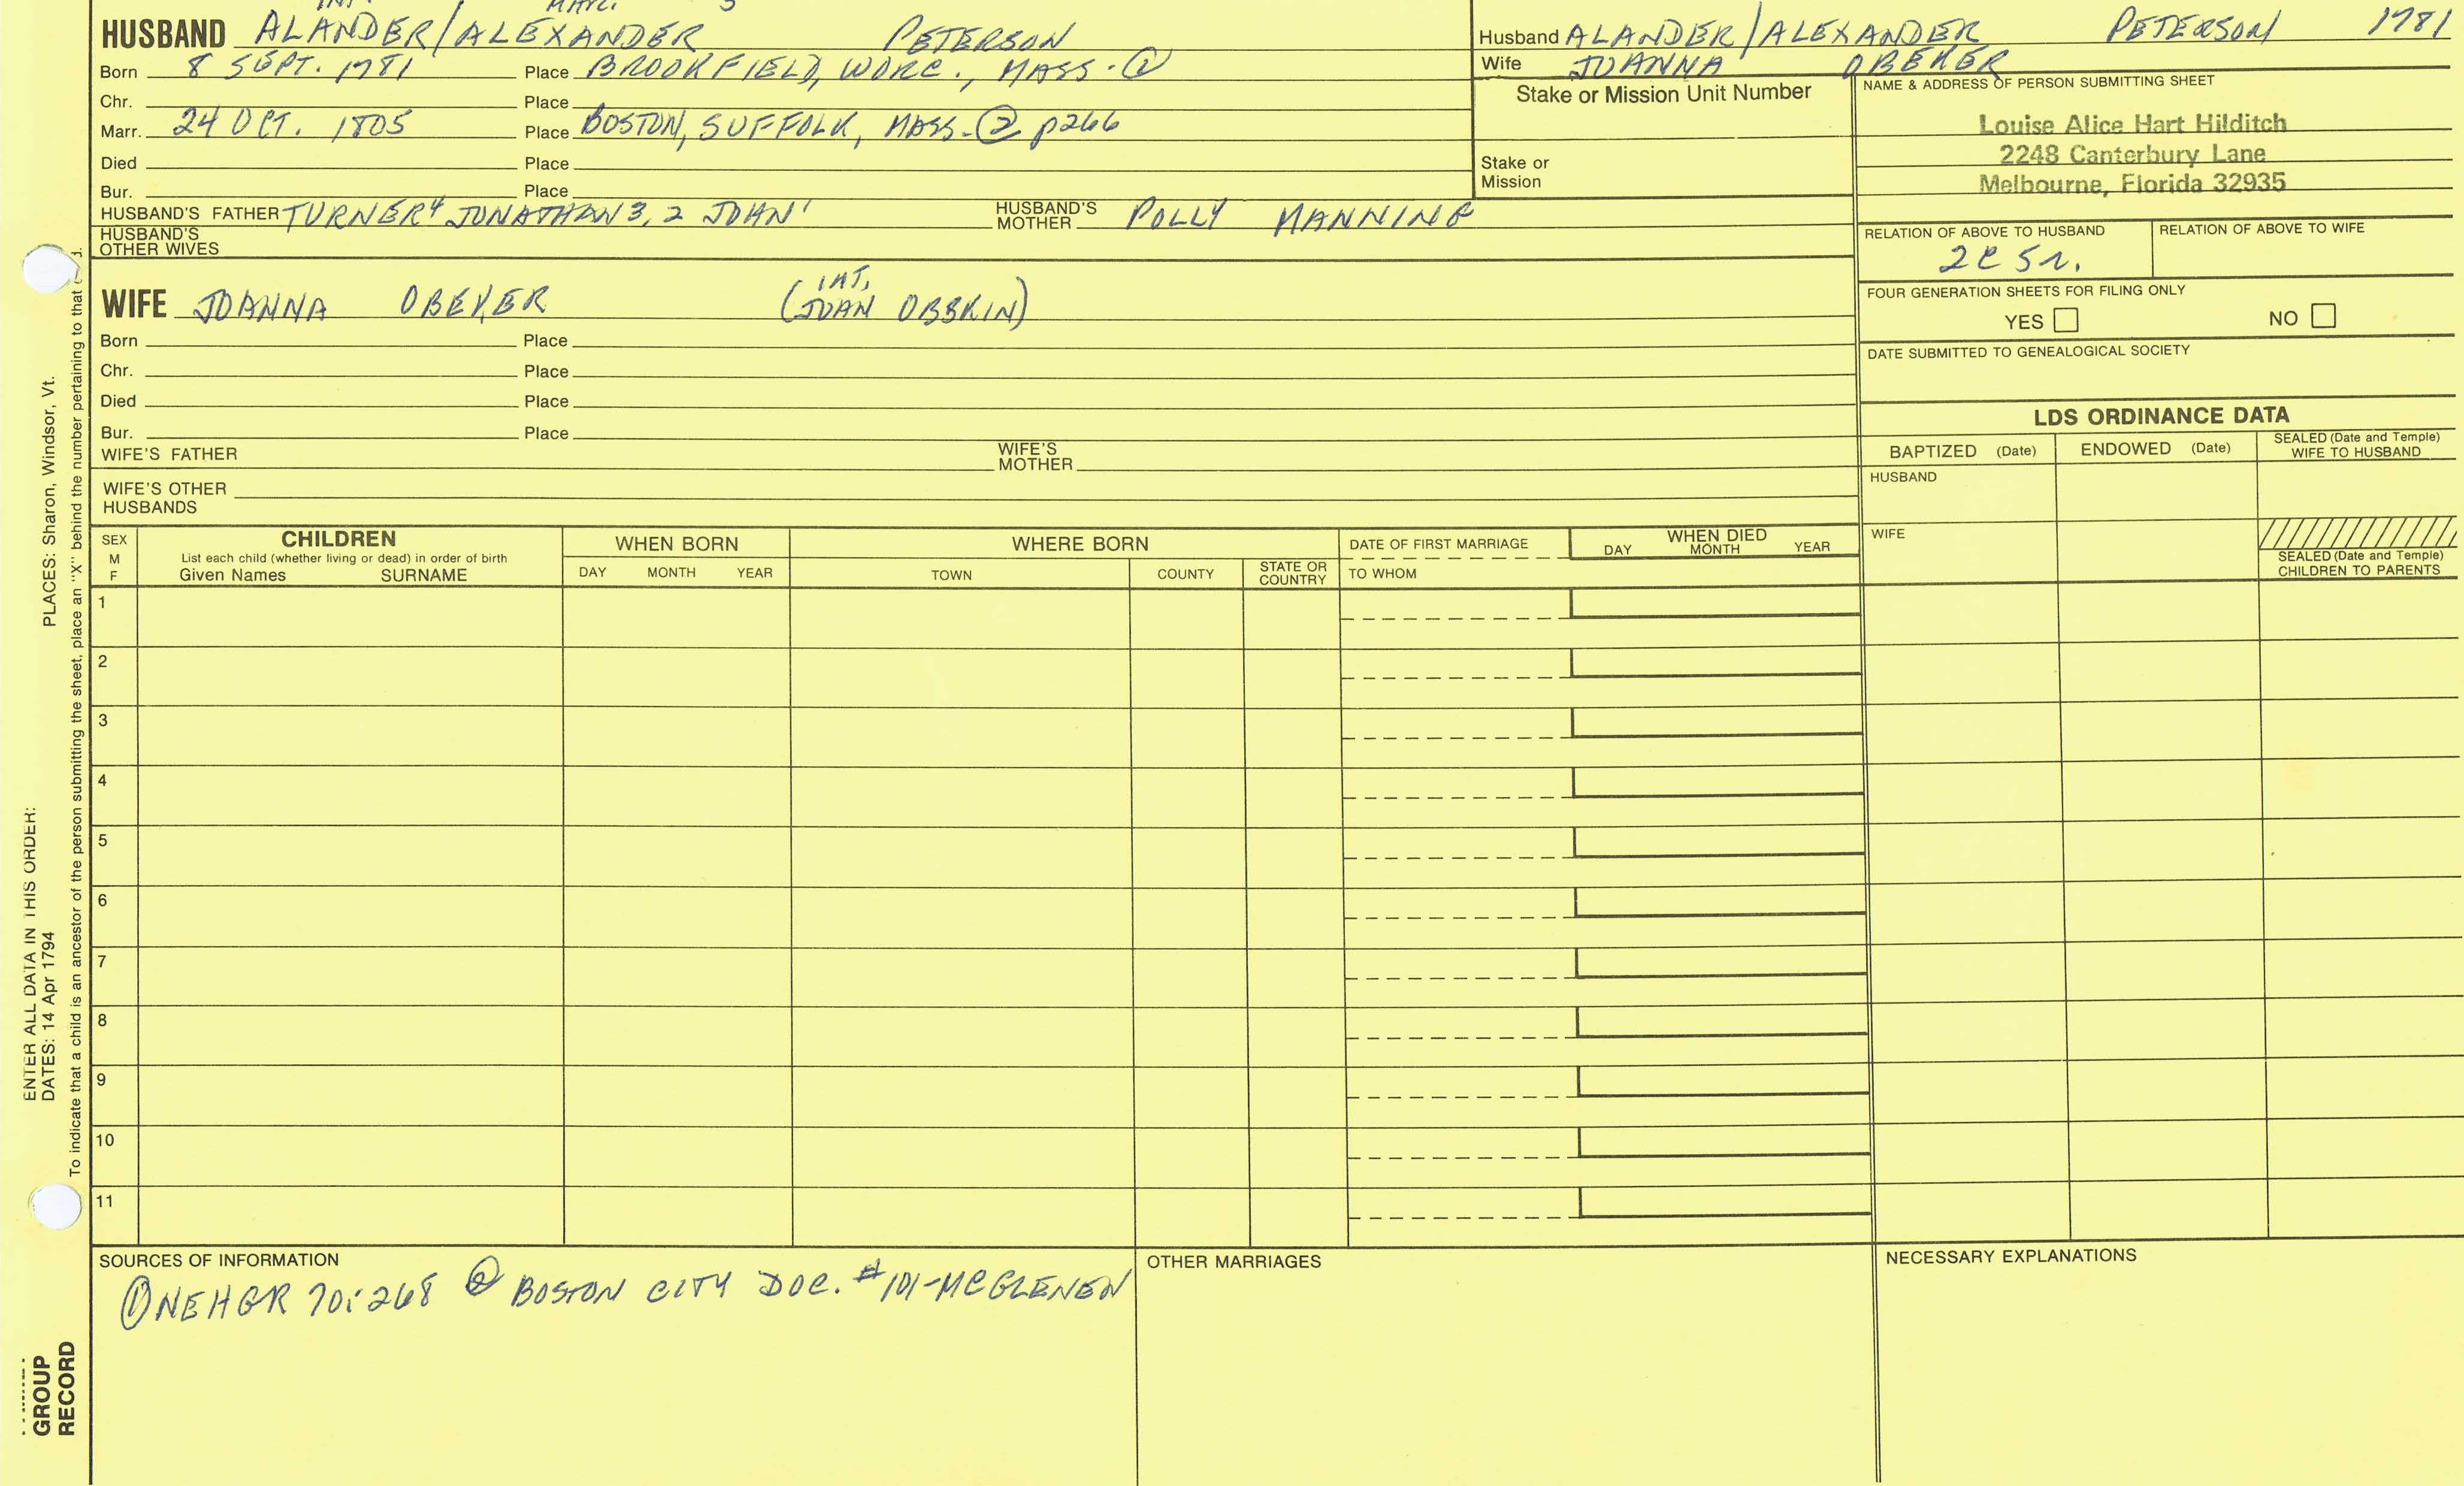 HUSBAND ALANDER/ALEXANDER PETERSON
Born 8 SEPT. 1781 Place BROOKFIELD, WORC., MASS. ①
Chr. Place
Marr. 24 OCT. 1805 Place BOSTON, SUFFOLK, MASS. ② p266
Died Place
Bur. Place
HUSBAND'S FATHER TURNER⁴ JONATHAN 3, 2 JOHN¹ HUSBAND'S MOTHER POLLY MANNING
HUSBAND'S OTHER WIVES
Husband ALANDER/ALEXANDER PETERSON 1781
Wife JOANNA OBEKER
Stake or Mission Unit Number
Stake or Mission
NAME & ADDRESS OF PERSON SUBMITTING SHEET
Louise Alice Hart Hilditch
2248 Canterbury Lane
Melbourne, Florida 32935
RELATION OF ABOVE TO HUSBAND RELATION OF ABOVE TO WIFE
2C 5r.
FOUR GENERATION SHEETS FOR FILING ONLY
YES NO
DATE SUBMITTED TO GENEALOGICAL SOCIETY
WIFE JOANNA OBEKER (JOAN OBSKIN)
INT.
Born Place
Chr. Place
Died Place
Bur. Place
WIFE'S FATHER WIFE'S MOTHER
WIFE'S OTHER HUSBANDS
LDS ORDINANCE DATA
BAPTIZED (Date) ENDOWED (Date) SEALED (Date and Temple) WIFE TO HUSBAND
HUSBAND
WIFE
SEALED (Date and Temple) CHILDREN TO PARENTS
SEX M F
CHILDREN
List each child (whether living or dead) in order of birth
Given Names SURNAME
WHEN BORN
DAY MONTH YEAR
WHERE BORN
TOWN COUNTY STATE OR COUNTRY
DATE OF FIRST MARRIAGE
TO WHOM
WHEN DIED
DAY MONTH YEAR
1
2
3
4
5
6
7
8
9
10
11
SOURCES OF INFORMATION
① NEHGR 70:268 ② BOSTON CITY DOC. #101-MCGLENEN
OTHER MARRIAGES
NECESSARY EXPLANATIONS
ENTER ALL DATA IN THIS ORDER:
DATES: 14 Apr 1794 PLACES: Sharon, Windsor, Vt.
To indicate that a child is an ancestor of the person submitting the sheet, place an "X" behind the number pertaining to that
GROUP
RECORD